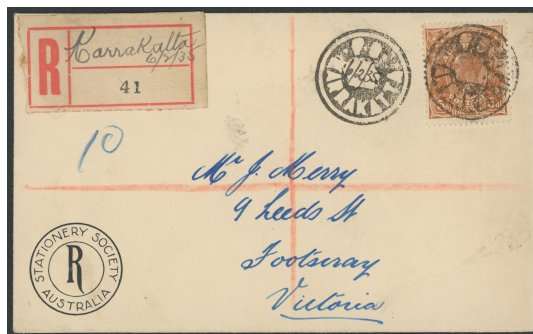 R
Karrakatta
6/2/35
41
10
Mr J. Merry
9 Leeds St
Footscray
Victoria
STATIONERY SOCIETY
R
AUSTRALIA